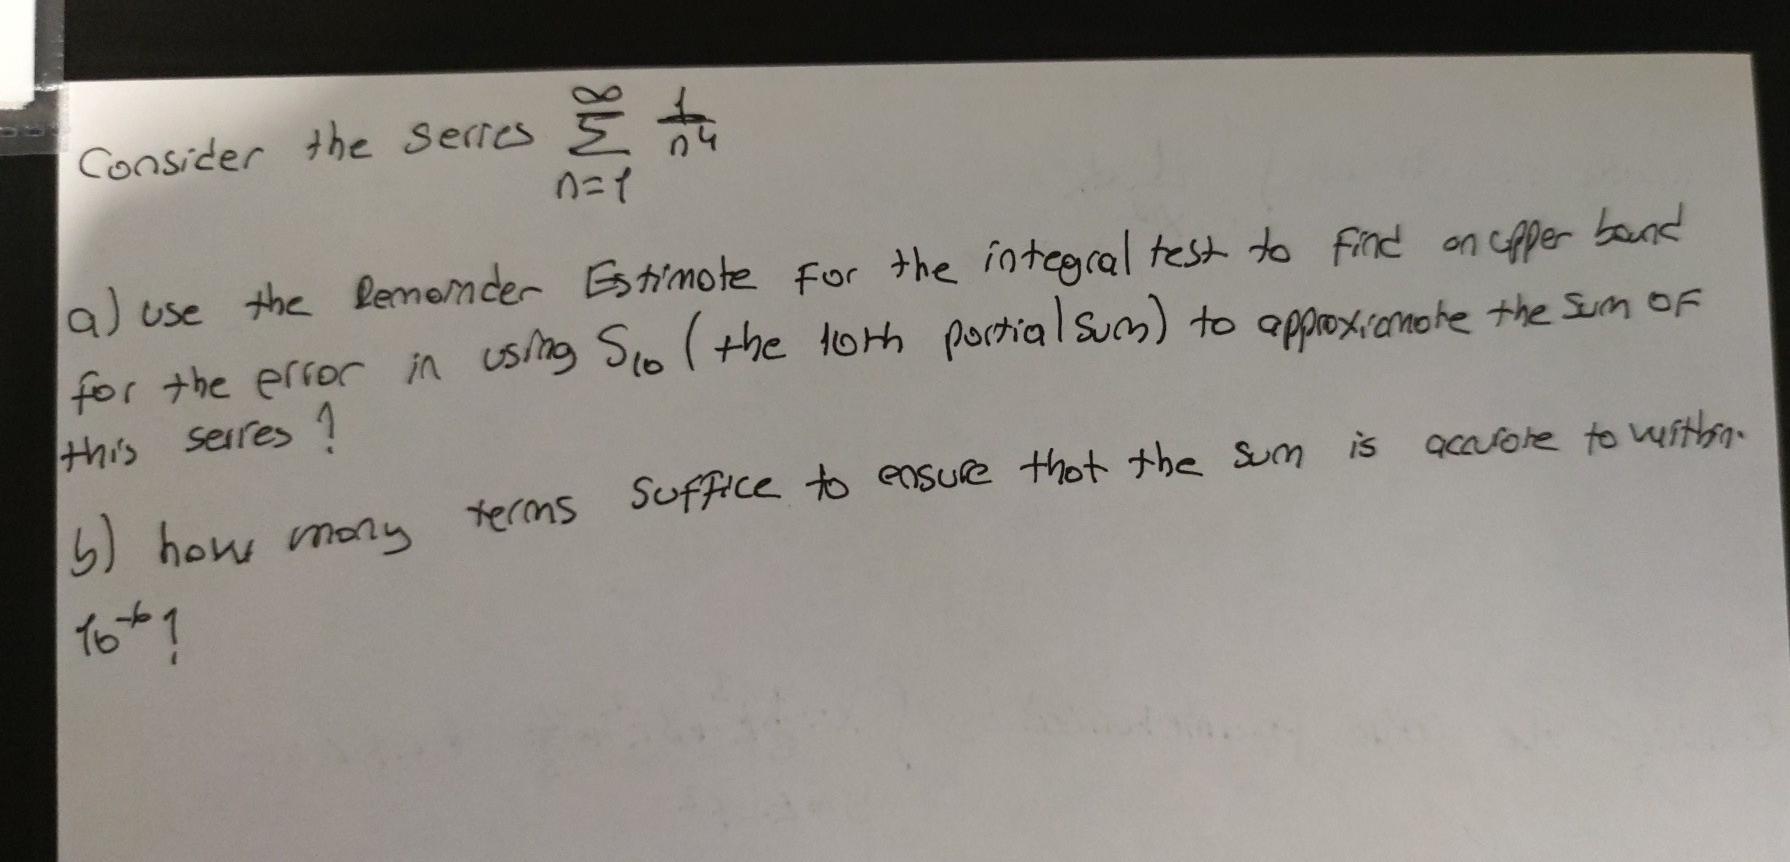 Consider the series ∞ Σ n=1 1/n⁴
a) use the Remainder Estimate For the integral test to find an upper bound
for the error in using S₁₀ (the 10th partial sum) to approximate the sum OF
this series ?
b) how many terms suffice to ensure that the sum is accurate to within
10⁻⁶ ?